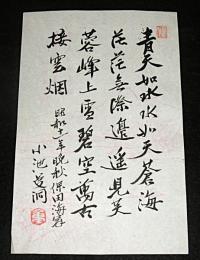 青天如水水如天蒼海
茫茫無際邊遥見芙
蓉峰上雪碧空萬古
接雲烟
昭和十一年晩秋保田海
小池洞